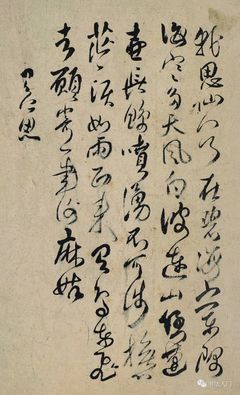 我思仙人乃在碧海之東隅
海寒多天風白波連山倒蓬
壺長鯨噴湧不可涉撫心
茫茫淚如西來青鳥東飛
去願寄一書謝麻姑
有所思